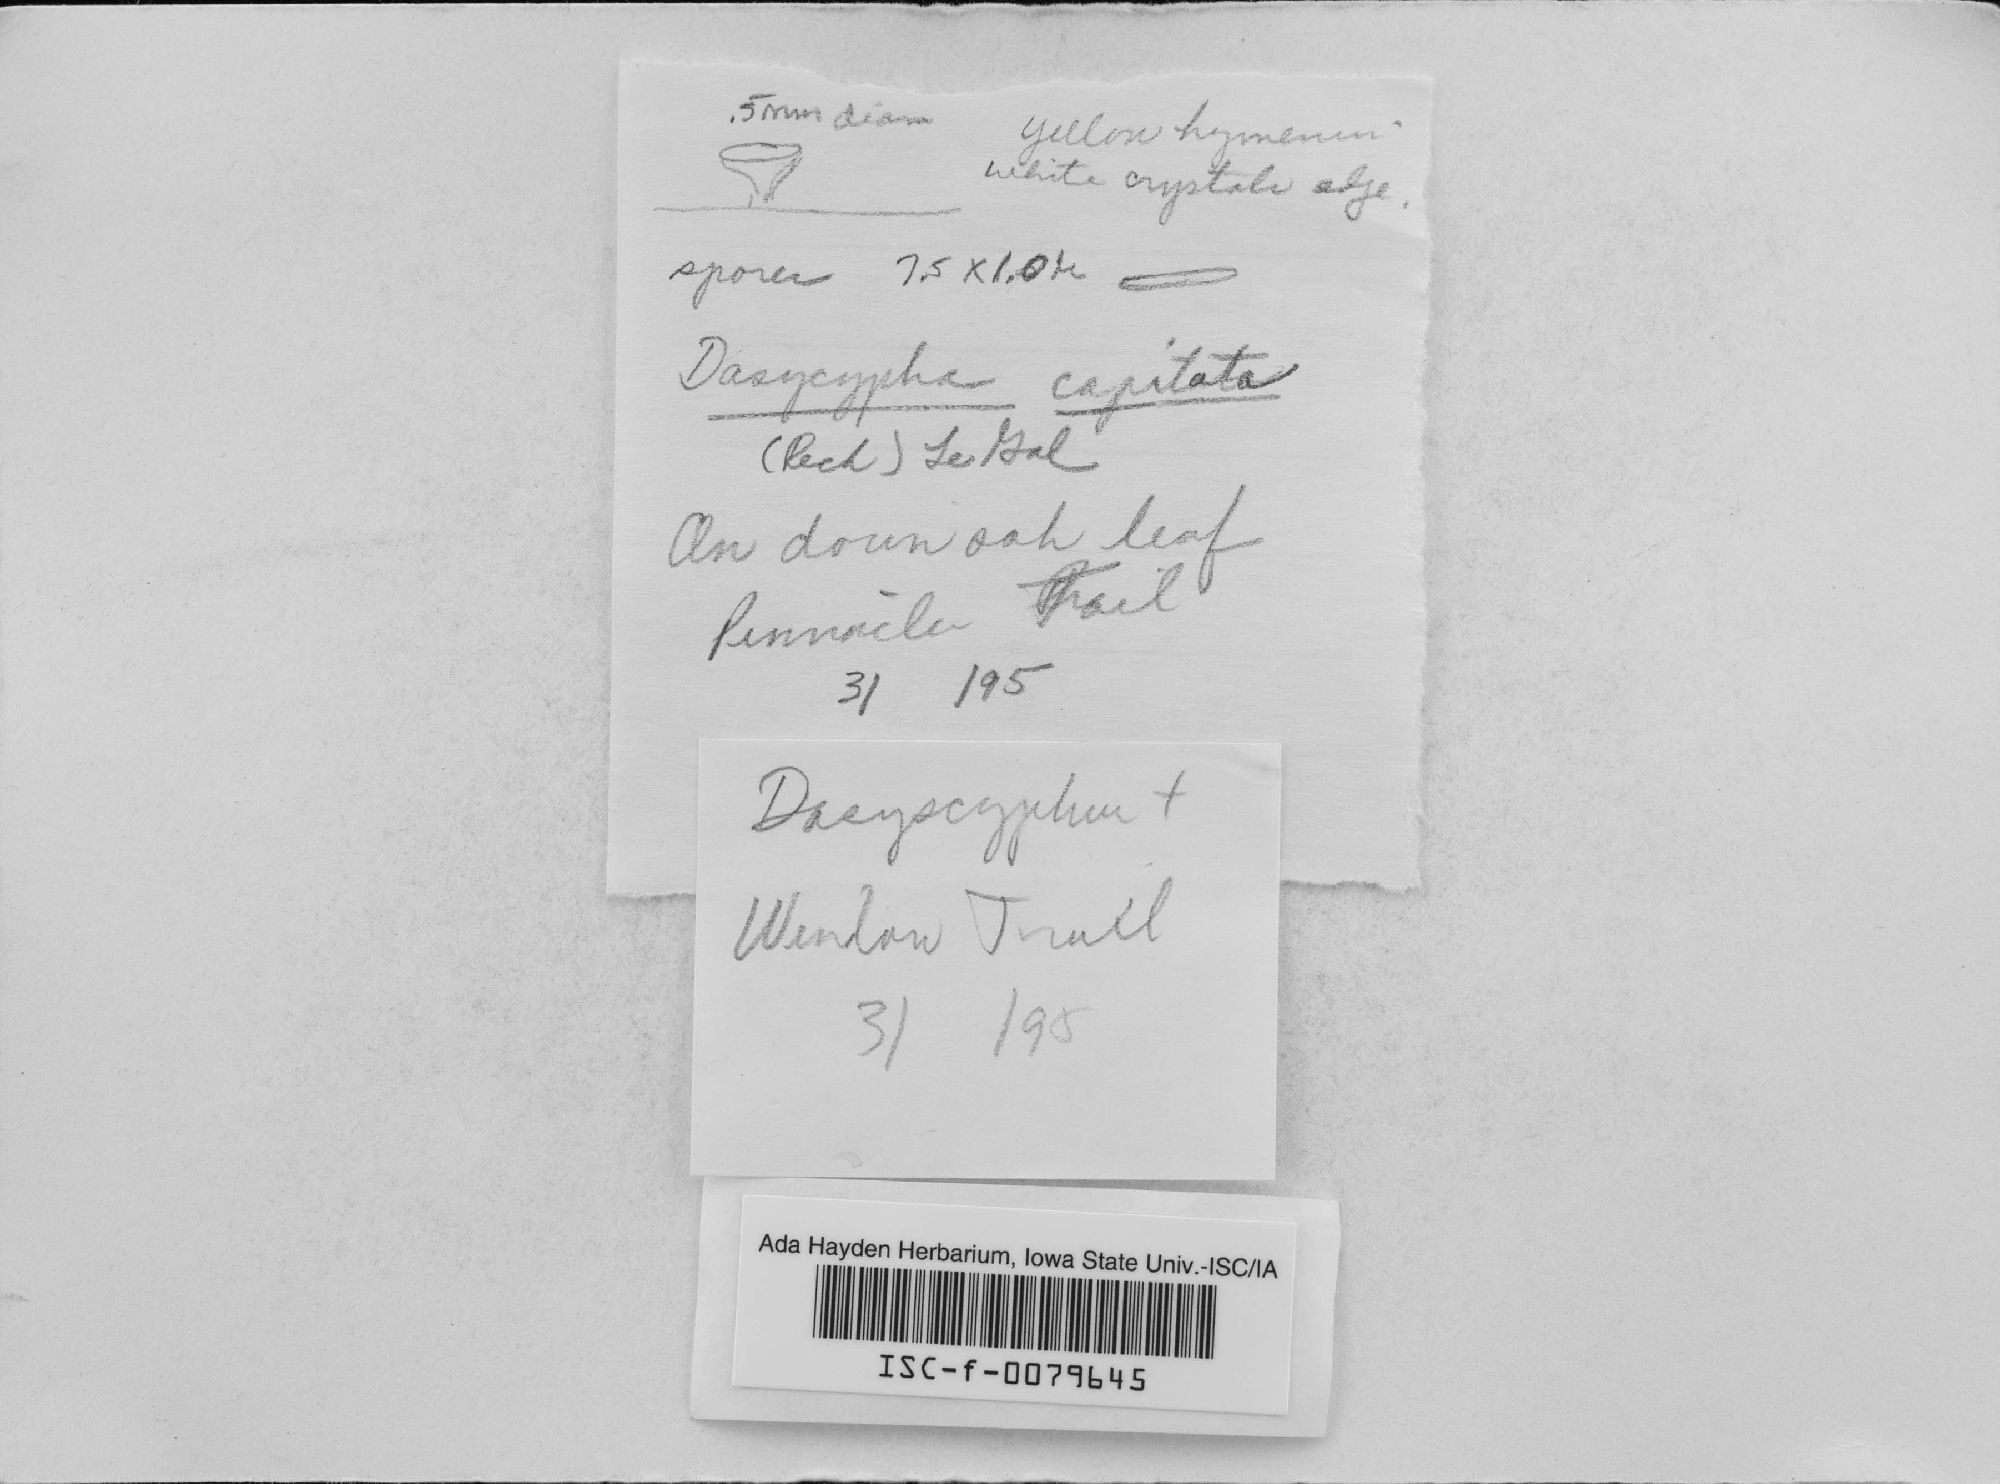 .5mm diam
yellow hymenium
white crystals edge.
spores 7.5 X 1.0 µ
Dasycypha capitata
(Peck) Le Gal
On down oak leaf
Pinnacle Trail
31 195
Dasyscyphus +
Window Trail
31 195
Ada Hayden Herbarium, Iowa State Univ.-ISC/IA
ISC-f-0079645